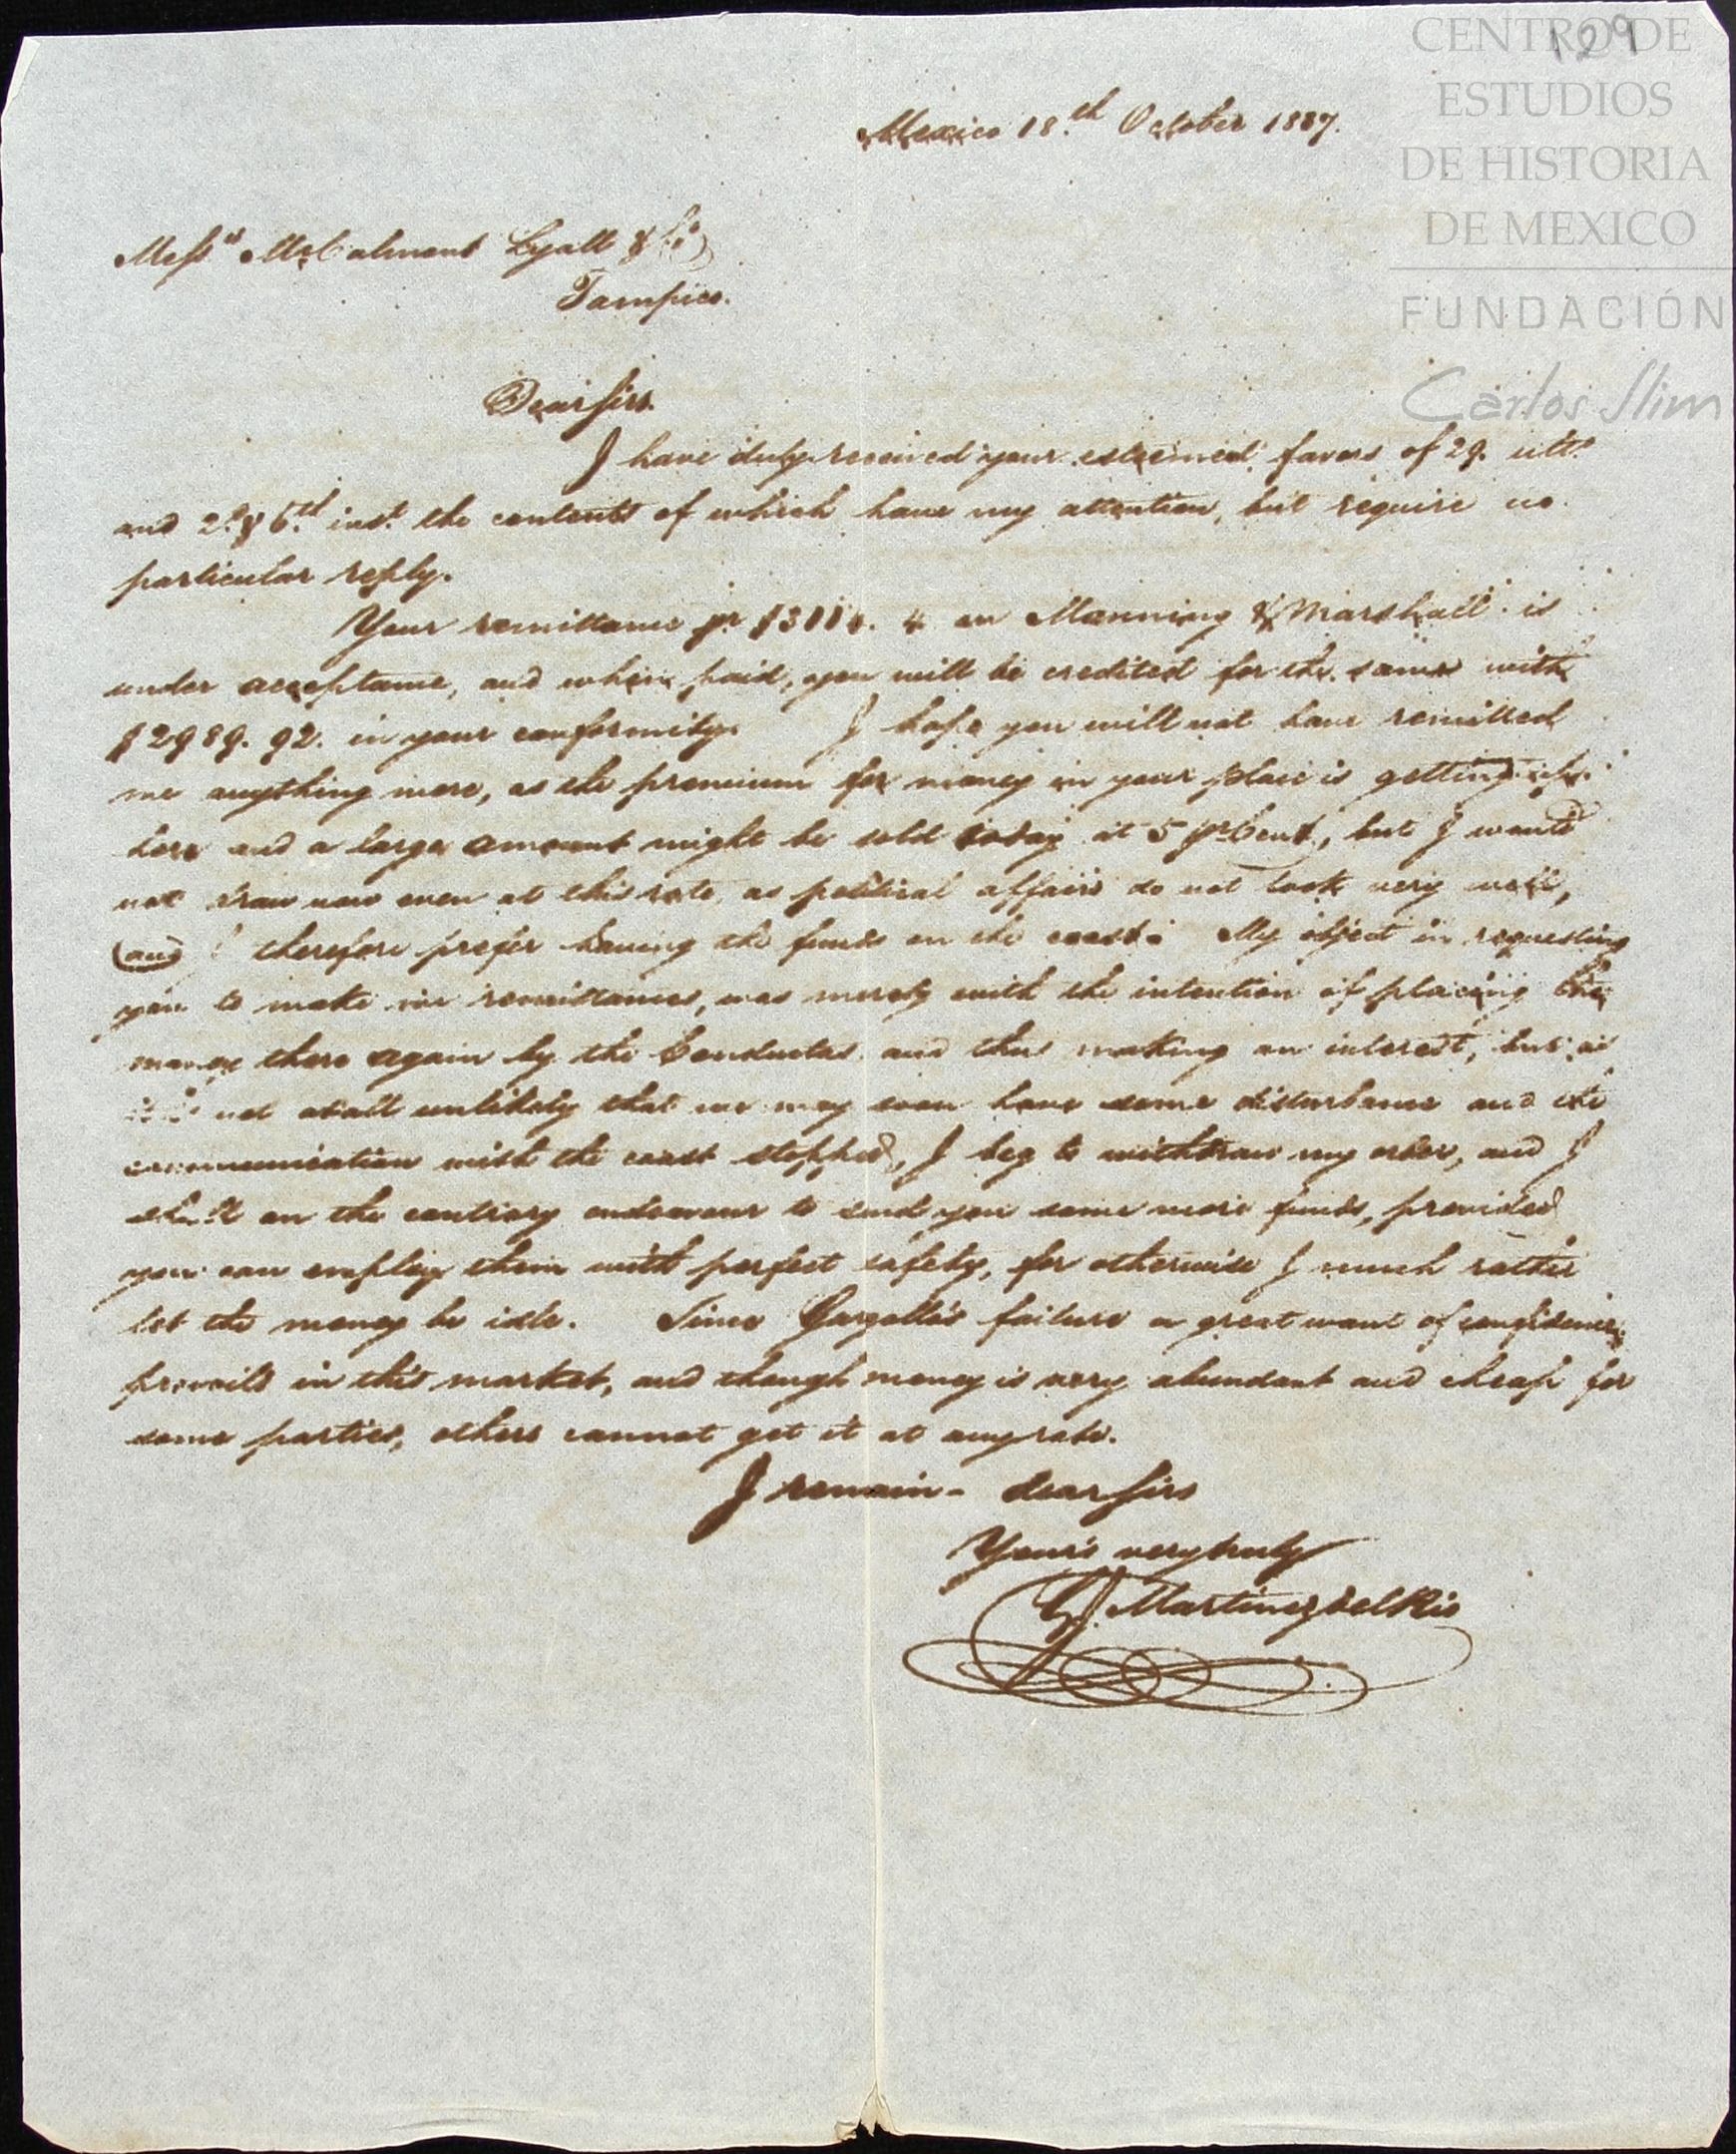 129
CENTRO DE
ESTUDIOS
DE HISTORIA
DE MEXICO
FUNDACIÓN
Carlos Slim
Mexico 18.th October 1837.
Messrs McCalmont Lyall & Co
Tampico.
Dear Sirs
I have duly received your esteemed favors of 29. ulto
and 2d & 6.th inst. the contents of which have my attention, but require no
particular reply.
Your remittance pr $311 . 4 on Manning & Marshall is
under acceptance, and when paid, you will be credited for the same with
$2989. 92. in your conformity. I hope you will not have remitted
me anything more, as the premium for money in your place is getting up
here and a large amount might be sold today at 5 pr Cent, but I would
not draw now even at this rate, as political affairs do not look very well,
(and) I therefore prefer having the funds on the coast. My object in requesting
you to make me remittances, was merely with the intention of placing the
money there again by the Conductas and thus making an interest, but as
it is not at all unlikely that we may soon have some disturbance and the
communication with the coast stopped, I beg to withdraw my order, and I
shall on the contrary endeavour to send you some more funds, provided
you can employ them with perfect safety, for otherwise I much rather
let the money be idle. Since Gargollo's failure a great want of confidence
prevails in this market, and though money is very abundant and cheap for
some parties, others cannot get it at any rate.
I remain - dear Sirs
Yours very truly
G Martinez del Rio